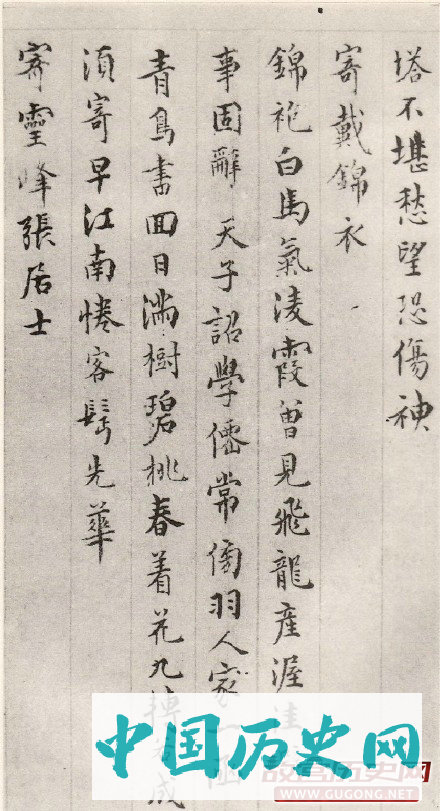 塔不堪愁望恐傷神
寄戴錦衣
錦袍白馬氣淩霞曾見飛龍産渥洼
事固辭天子詔學僊常傍羽人家一函
青鳥書回日滿樹碧桃春着花九成
須寄早江南惓客鬢先華
寄靈峰張居士
中国历史网
WWW.GUGONG.NET